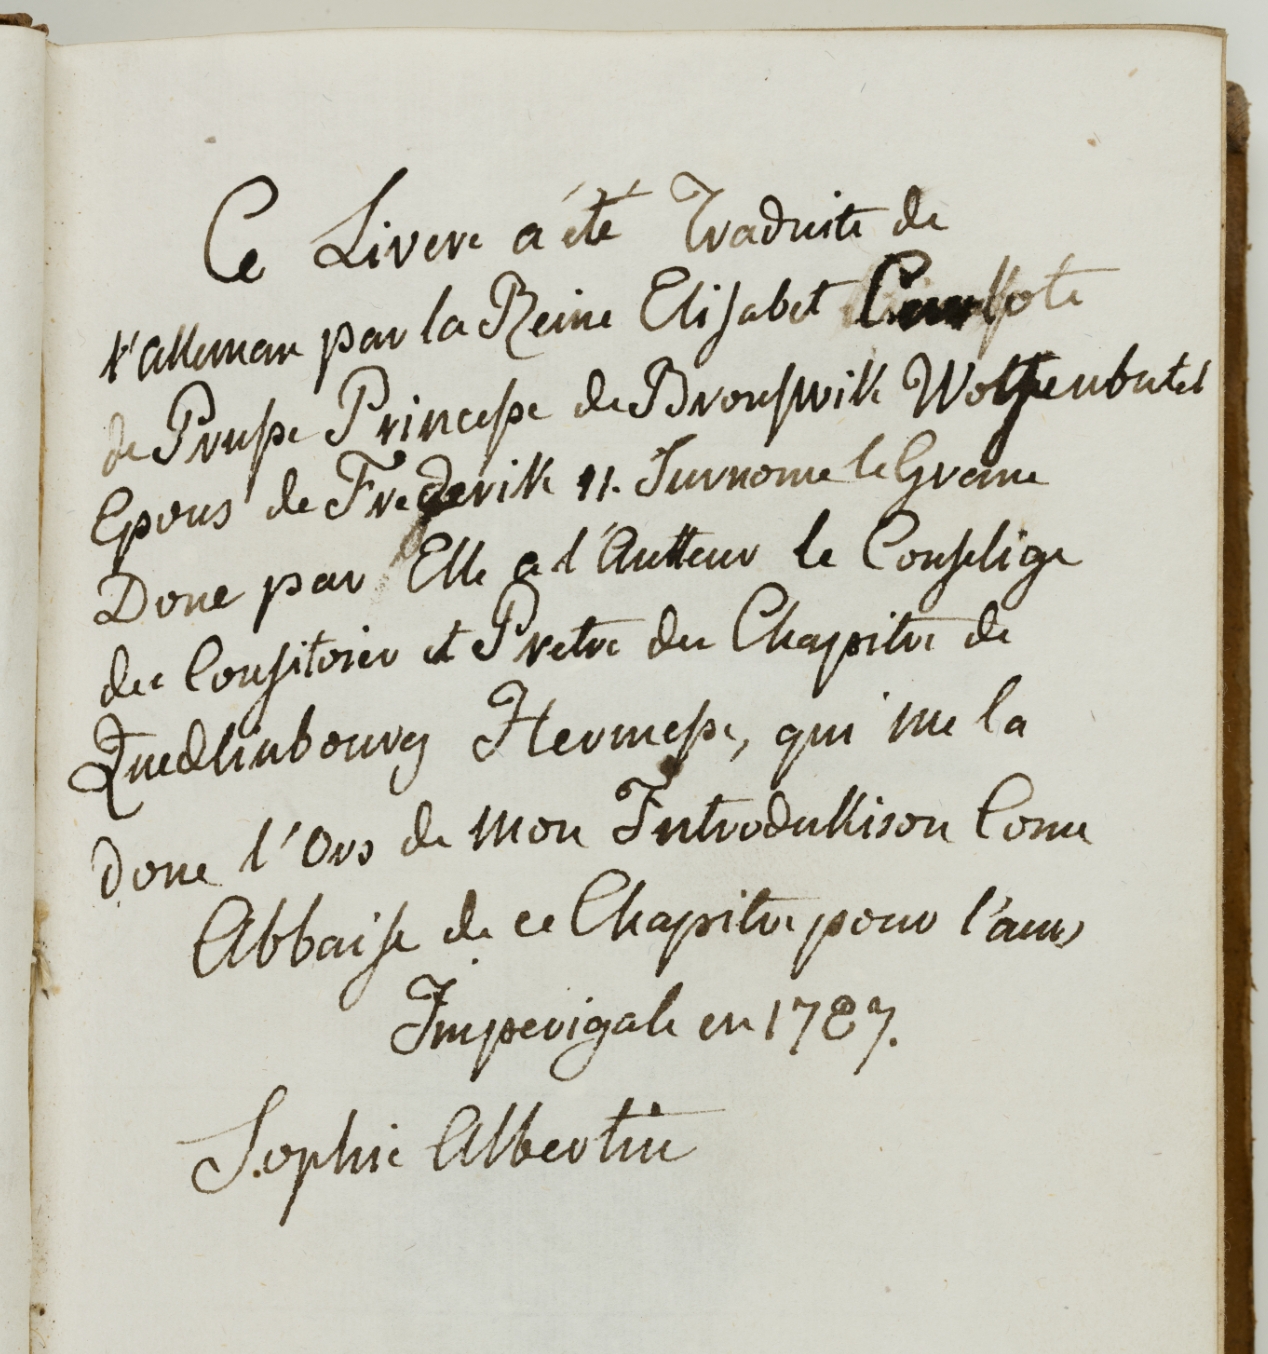 Ce Livere a été Traduite de
l'alleman par la Reine Elisabet
de Prusse Princesse de Brouswik Wolfenbutel
Epous de Frederik II. Surnome le Grane
Done par Elle a l'Autteur le Conselige
du Consitoier et Pretre du Chapitre de
Quedlinbourg Hermesse, qui me la
done l'Ors de mon Introdukison Come
Abbaise de ce Chapitre pour l'
Imperigale en 1787.
Sophie Albertin